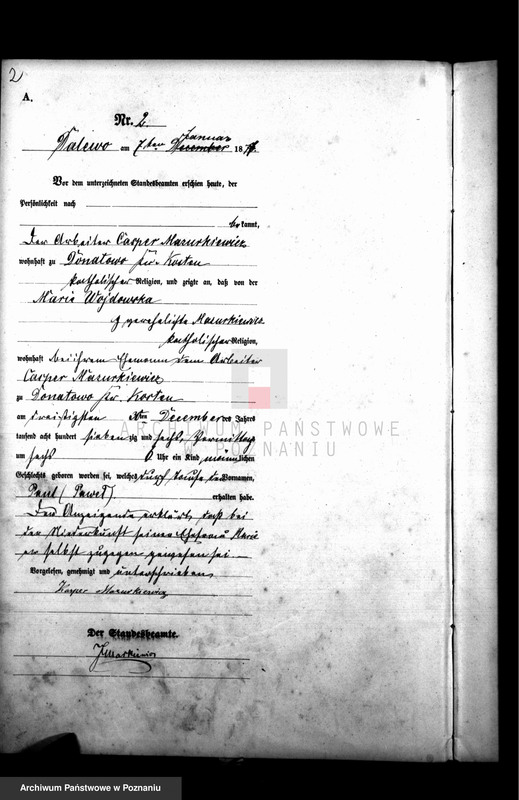 2
A.
Nr. 2.
Dalewo am 7ten Januar 1877.
Vor dem unterzeichneten Standesbeamten erschien heute, der
Persönlichkeit nach
bekannt,
Der Arbeiter Casper Mazurkiewicz
wohnhaft zu Donatowo Kr. Kosten
katholischer Religion, und zeigte an, daß von der
Marie Wojdowska
verehelichte Mazurkiewicz
katholischer Religion,
wohnhaft bei ihrem Ehemann dem Arbeiter
Casper Mazurkiewicz
zu Donatowo Kr. Kosten
am dreißigsten 30ten December des Jahres
tausend acht hundert siebenzig und sechs Vormittag
um sechs 6 Uhr ein Kind männlichen
Geschlechts geboren worden sei, welches durch Taufe den Vornamen,
Paul (Paweł)
erhalten habe.
Der Anzeigende erklärt, daß bei
der Niederkunft seiner Ehefrau Marie
er selbst zugegen gewesen sei —
Vorgelesen, genehmigt und unterschrieben
Kasper Mazurkiewicz
Der Standesbeamte.
ARCHIWUM PAŃSTWOWE
W POZNANIU
Archiwum Państwowe w Poznaniu